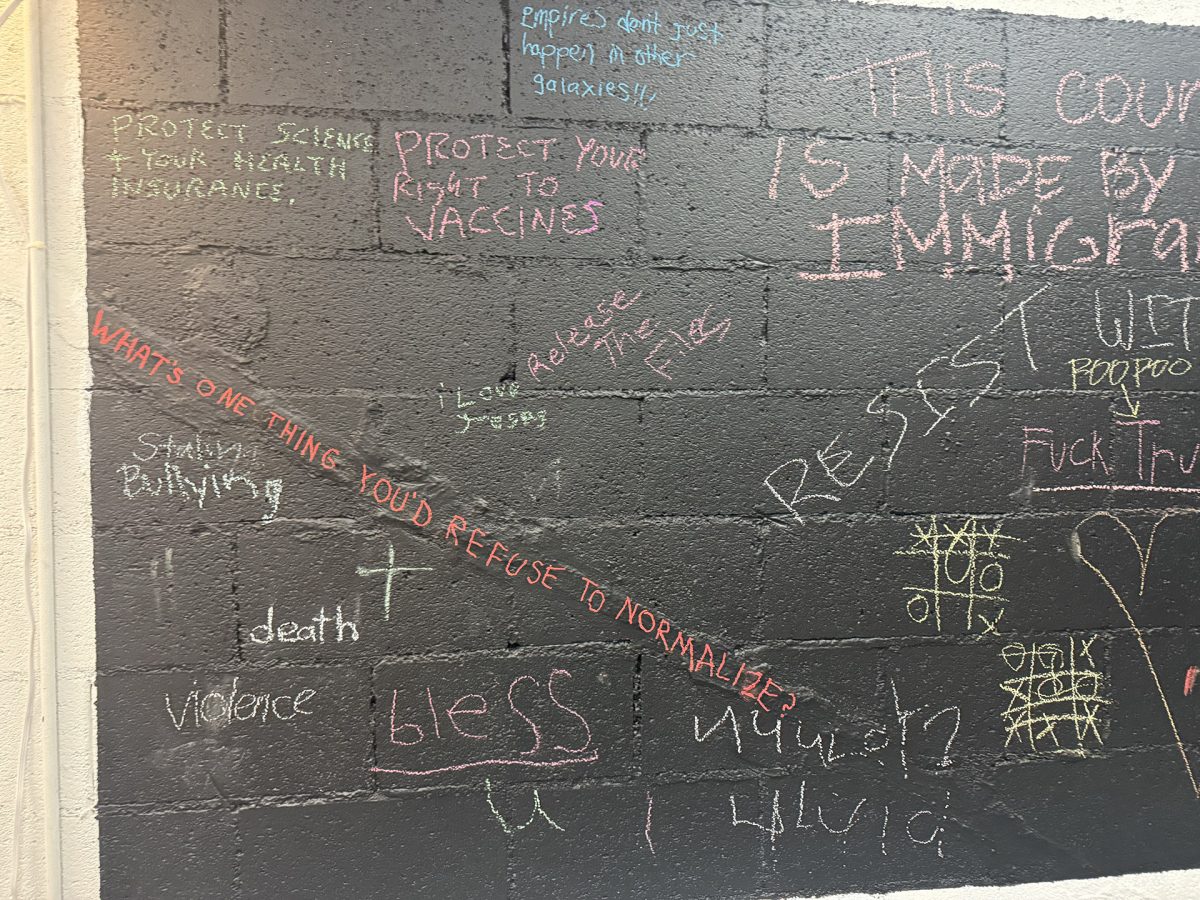 Empires dont just
happen in other
galaxies!!!
THIS COUN
IS MADE BY
IMMIGRA
PROTECT SCIENCE
+ YOUR HEALTH
INSURANCE.
PROTECT YOUR
RIGHT TO
VACCINES
Release
The
Files
RESIST WIT
POOPOO
FUCK TRU
WHAT'S ONE THING YOU'D REFUSE TO NORMALIZE?
i Love
Bullying
death
violence
bless
u